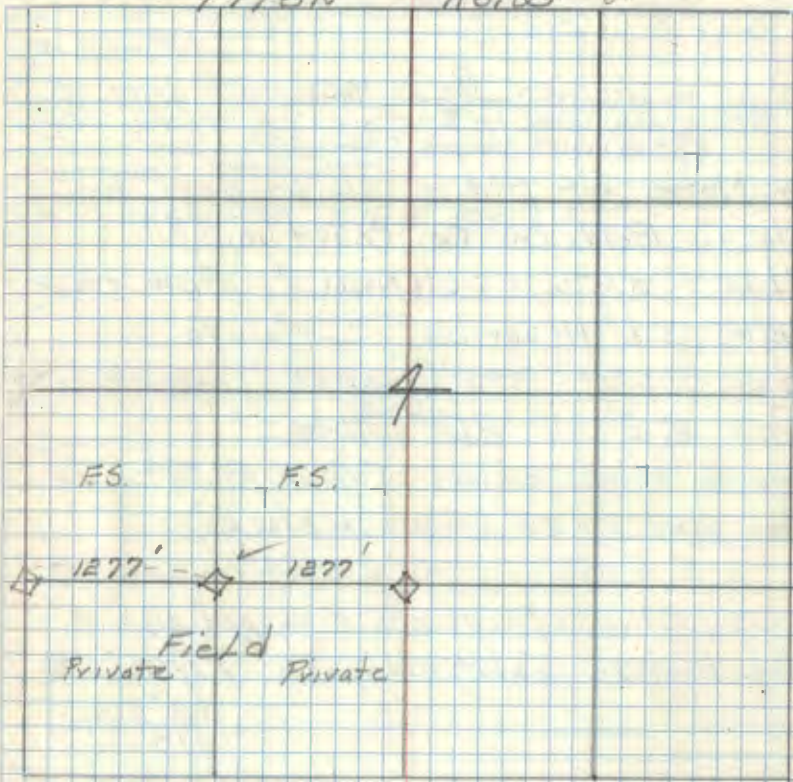 4
F.S. F.S.
1277' 1277'
Field
Private Private